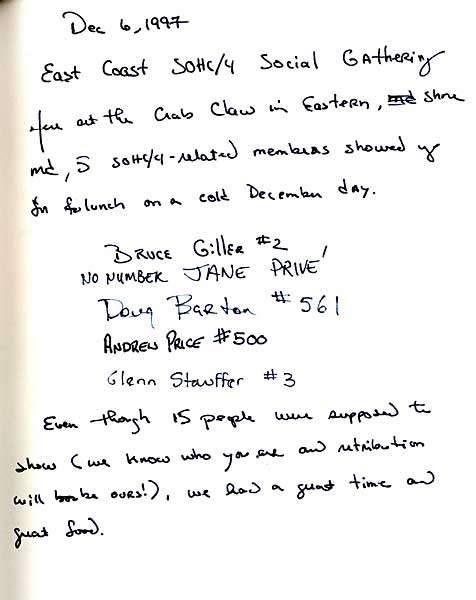 Dec 6, 1997
East Coast SOHC/4 Social Gathering
Here at the Crab Claw in Eastern, md shore
md, 5 SOHC/4-related members showed up
for lunch on a cold December day.
Bruce Giller #2
NO NUMBER JANE PRIVE'
Doug Barton #561
ANDREW PRICE #500
Glenn Stauffer #3
Even though 15 people were supposed to
show (we know who you are and retribution
will be ours!), we had a great time and
great food.